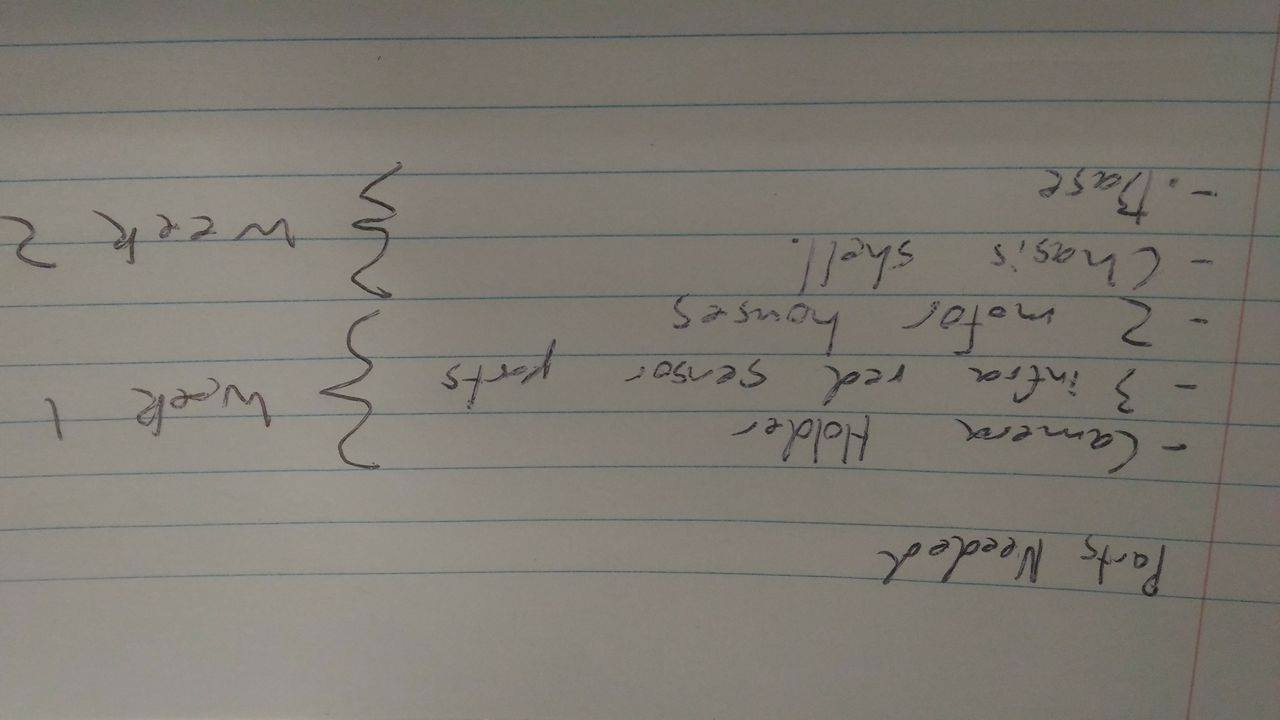 Parts Needed
- Camera Holder
- 3 infra red sensor parts
- 2 motor houses
Week 1
- Chasis shell.
- . Base
week 2